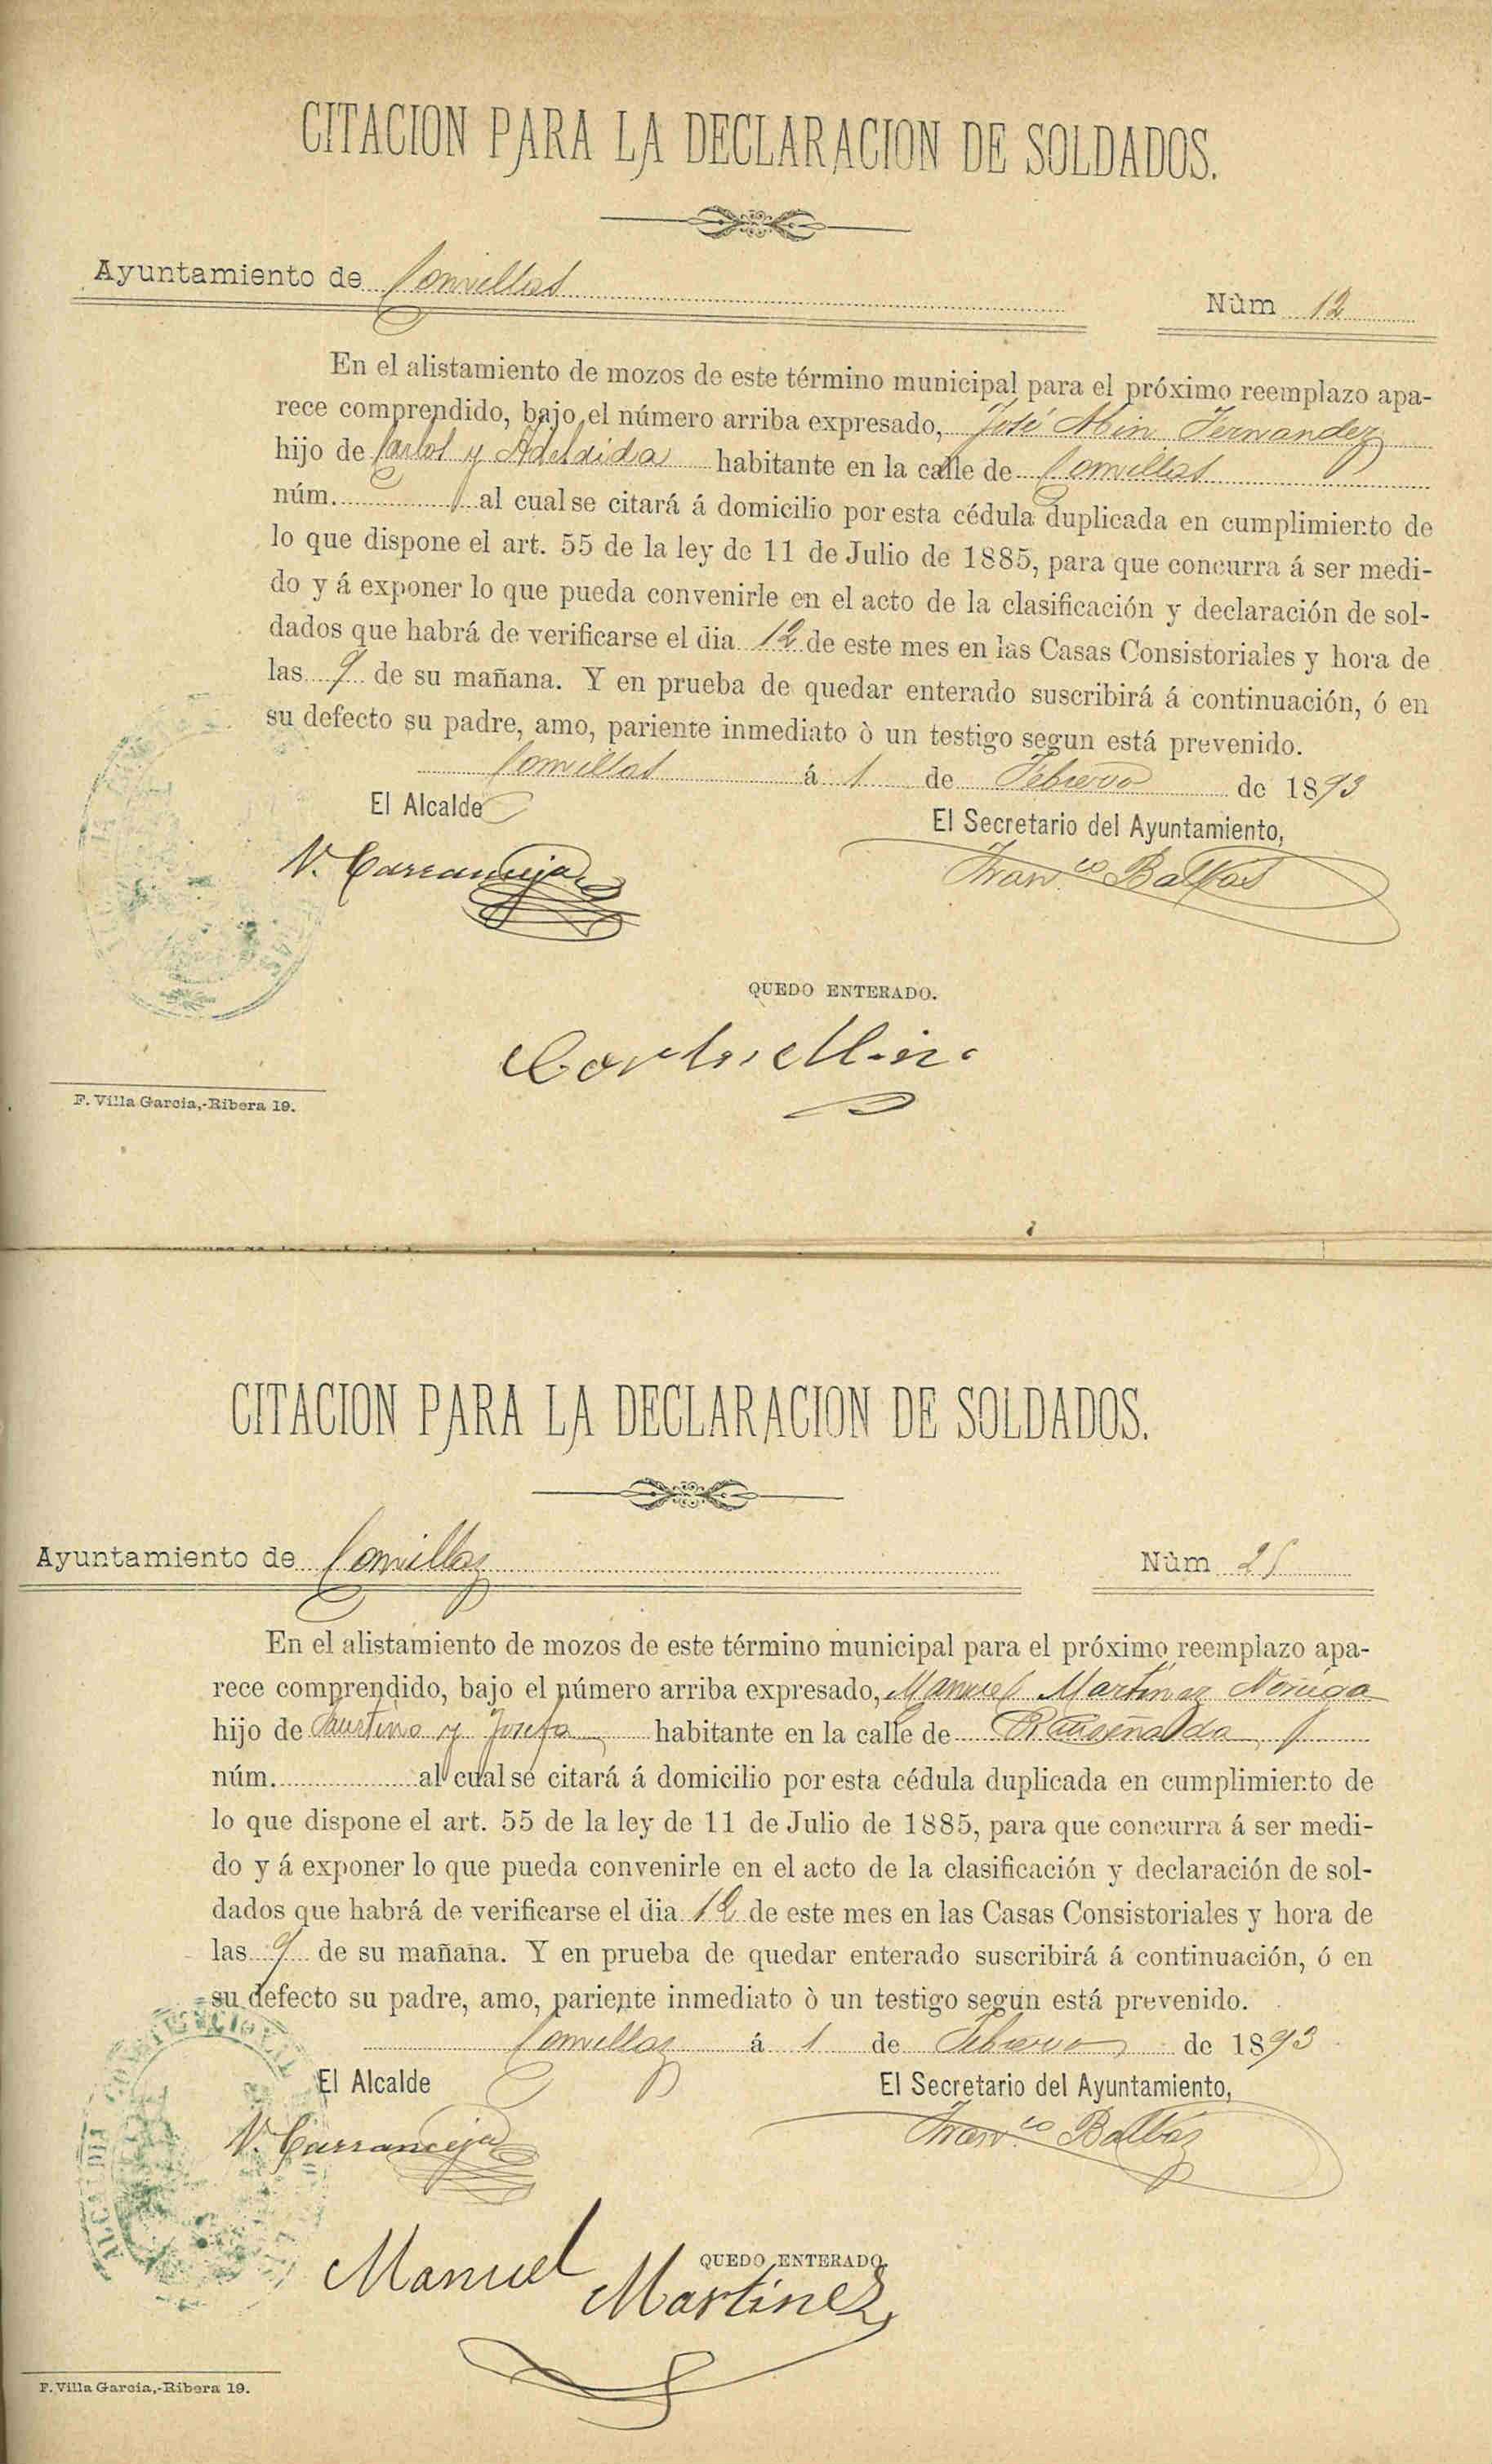 CITACION PARA LA DECLARACION DE SOLDADOS.
Ayuntamiento de Comillas
Núm 12
En el alistamiento de mozos de este término municipal para el próximo reemplazo apa-
rece comprendido, bajo el número arriba expresado, José Min Fernandez
hijo de Carlos y Adelaida habitante en la calle de Comillas
núm. al cual se citará á domicilio por esta cédula duplicada en cumplimiento de
lo que dispone el art. 55 de la ley de 11 de Julio de 1885, para que concurra á ser medi-
do y á exponer lo que pueda convenirle en el acto de la clasificación y declaración de sol-
dados que habrá de verificarse el dia 12 de este mes en las Casas Consistoriales y hora de
las 9 de su mañana. Y en prueba de quedar enterado suscribirá á continuación, ó en
su defecto su padre, amo, pariente inmediato ò un testigo segun está prevenido.
Comillas á 1 de Febrero de 1893
El Alcalde
El Secretario del Ayuntamiento,
V. Carranceja
Fran.co Balbás
QUEDO ENTERADO.
Carlos Min
F. Villa Garcia,-Ribera 19.
CITACION PARA LA DECLARACION DE SOLDADOS.
Ayuntamiento de Comillas
Núm 25
En el alistamiento de mozos de este término municipal para el próximo reemplazo apa-
rece comprendido, bajo el número arriba expresado, Manuel Martinez Noriega
hijo de Faustino y Josefa habitante en la calle de Ruiseñada
núm. al cual se citará á domicilio por esta cédula duplicada en cumplimiento de
lo que dispone el art. 55 de la ley de 11 de Julio de 1885, para que concurra á ser medi-
do y á exponer lo que pueda convenirle en el acto de la clasificación y declaración de sol-
dados que habrá de verificarse el dia 12 de este mes en las Casas Consistoriales y hora de
las 9 de su mañana. Y en prueba de quedar enterado suscribirá á continuación, ó en
su defecto su padre, amo, pariente inmediato ò un testigo segun está prevenido.
Comillas á 1 de Febrero de 1893
El Alcalde
El Secretario del Ayuntamiento,
V. Carranceja
Fran.co Balbás
QUEDO ENTERADO.
Manuel Martínez
F. Villa Garcia,-Ribera 19.